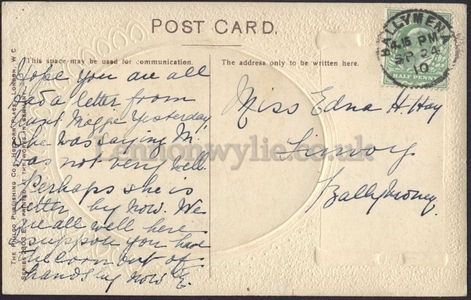 POST CARD.
This space may be used for communication.
The address only to be written here.
BALLYMENA
4.15 PM
SP 24
10
HALFPENNY
Hope you are all
a letter from
Aunt Maggie yesterday
she was saying M
was not very well.
Perhaps she is
better by now. We
are all well here
suppose you have
the corn out of
hands by now E.
Miss Edna H. Hay
Ballymoney.
londonwylie.co.uk